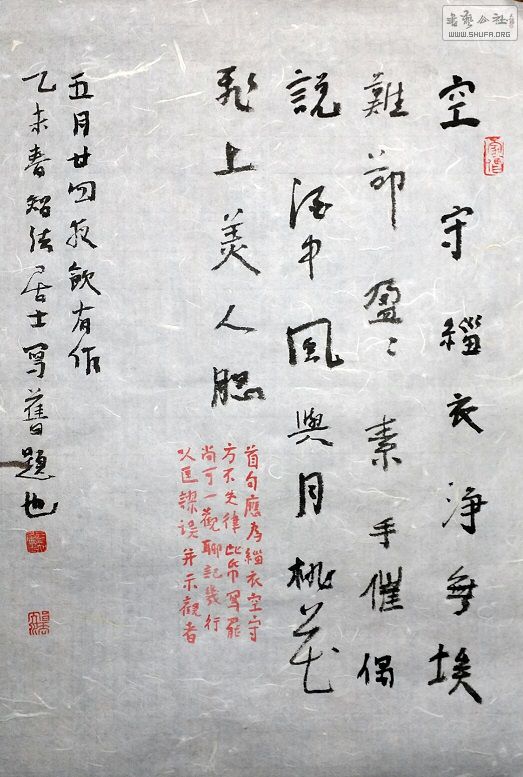 空守緇衣淨無埃
難卻盈〻素手催偶
說酒中風與月桃花
飛上美人腮
首句應為緇衣空守
方不失律此帋寫罷
尚可一觀聊記幾行
以匡謬誤并示觀者
五月廿四夜飲有作
乙未春智法居士寫舊題也
书艺公社
WWW.SHUFA.ORG